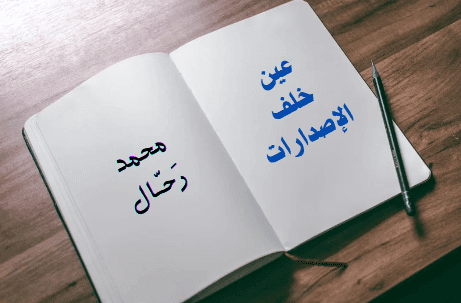 عين
خلف
الإصدارات
محمد
رَحّال